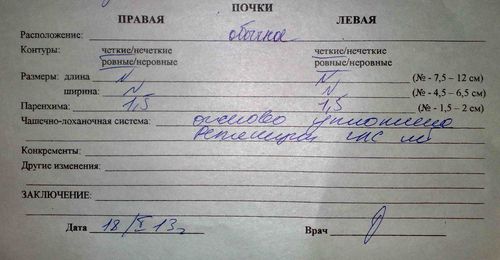 ПОЧКИ
ПРАВАЯ ЛЕВАЯ
Расположение: обычное
Контуры: четкие/нечеткие четкие/нечеткие
ровные/неровные ровные/неровные
Размеры: длина N N (№ - 7,5 – 12 см)
ширина: N N (№ - 4,5 – 6,5 см)
Паренхима: 1,5 1,5 (№ - 1,5 – 2 см)
Чашечно-лоханочная система: очагово уплотнена
ретенции члс
Конкременты:
Другие изменения:
ЗАКЛЮЧЕНИЕ:
Дата 18/X 13г Врач